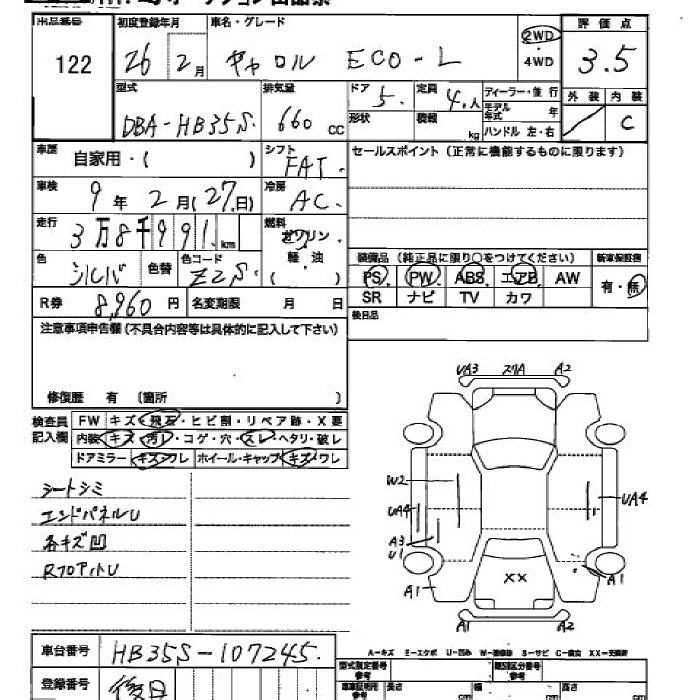 出品番号 初度登録年月 車名・グレード 2WD 評価点
122 26 2月 キャロル ECO-L 4WD 3.5
型式 排気量 ドア 定員 ディーラー・並行 外装 内装
DBA-HB35S 660 CC 5. 4.人 モデル年式 年 C
形状 積載 kg ハンドル 左・右
車歴 自家用・( ) シフト FAT. セールスポイント(正常に機能するものに限ります)
車検 9年 2月(27日) 冷房 AC.
走行 3万8千991.km 燃料 ガソリン
軽・油
色 シルバ 色替 色コード Z2S. ( ) 装備品(純正品に限り○をつけてください) 新車保証書
PS PW ABS エアB AW 有・無
R券 8,960円 名変期限 月 日 SR ナビ TV カワ
後日品
注意事項申告欄(不具合内容等は具体的に記入して下さい)
修復歴 有 (箇所 )
検査員 FW キズ・飛石・ヒビ割・リペア跡・X要
記入欄 内装 キズ・汚レ・コゲ・穴・スレ・ヘタリ・破レ
ドアミラー キズ・ワレ ホイール・キャップ キズ・ワレ
シートシミ
エンドパネルU
各キズ凹
UA3 スリA A2
W2
UA4 UA4
A3
U1
XX
A1 A1
A1 A2
A-キズ E-エクボ U-凹み W-補修跡 S-サビ C-腐食 XX-交換済
車台番号 HB35S-107245. 型式指定番号参考 類別区分番号参考
登録番号 後日 車車証明用参考 長さ 幅 高さ